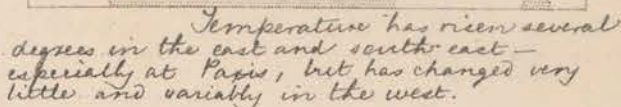 Temperature has risen several
degrees in the east and south east —
especially at Paris, but has changed very
little and variably in the west.